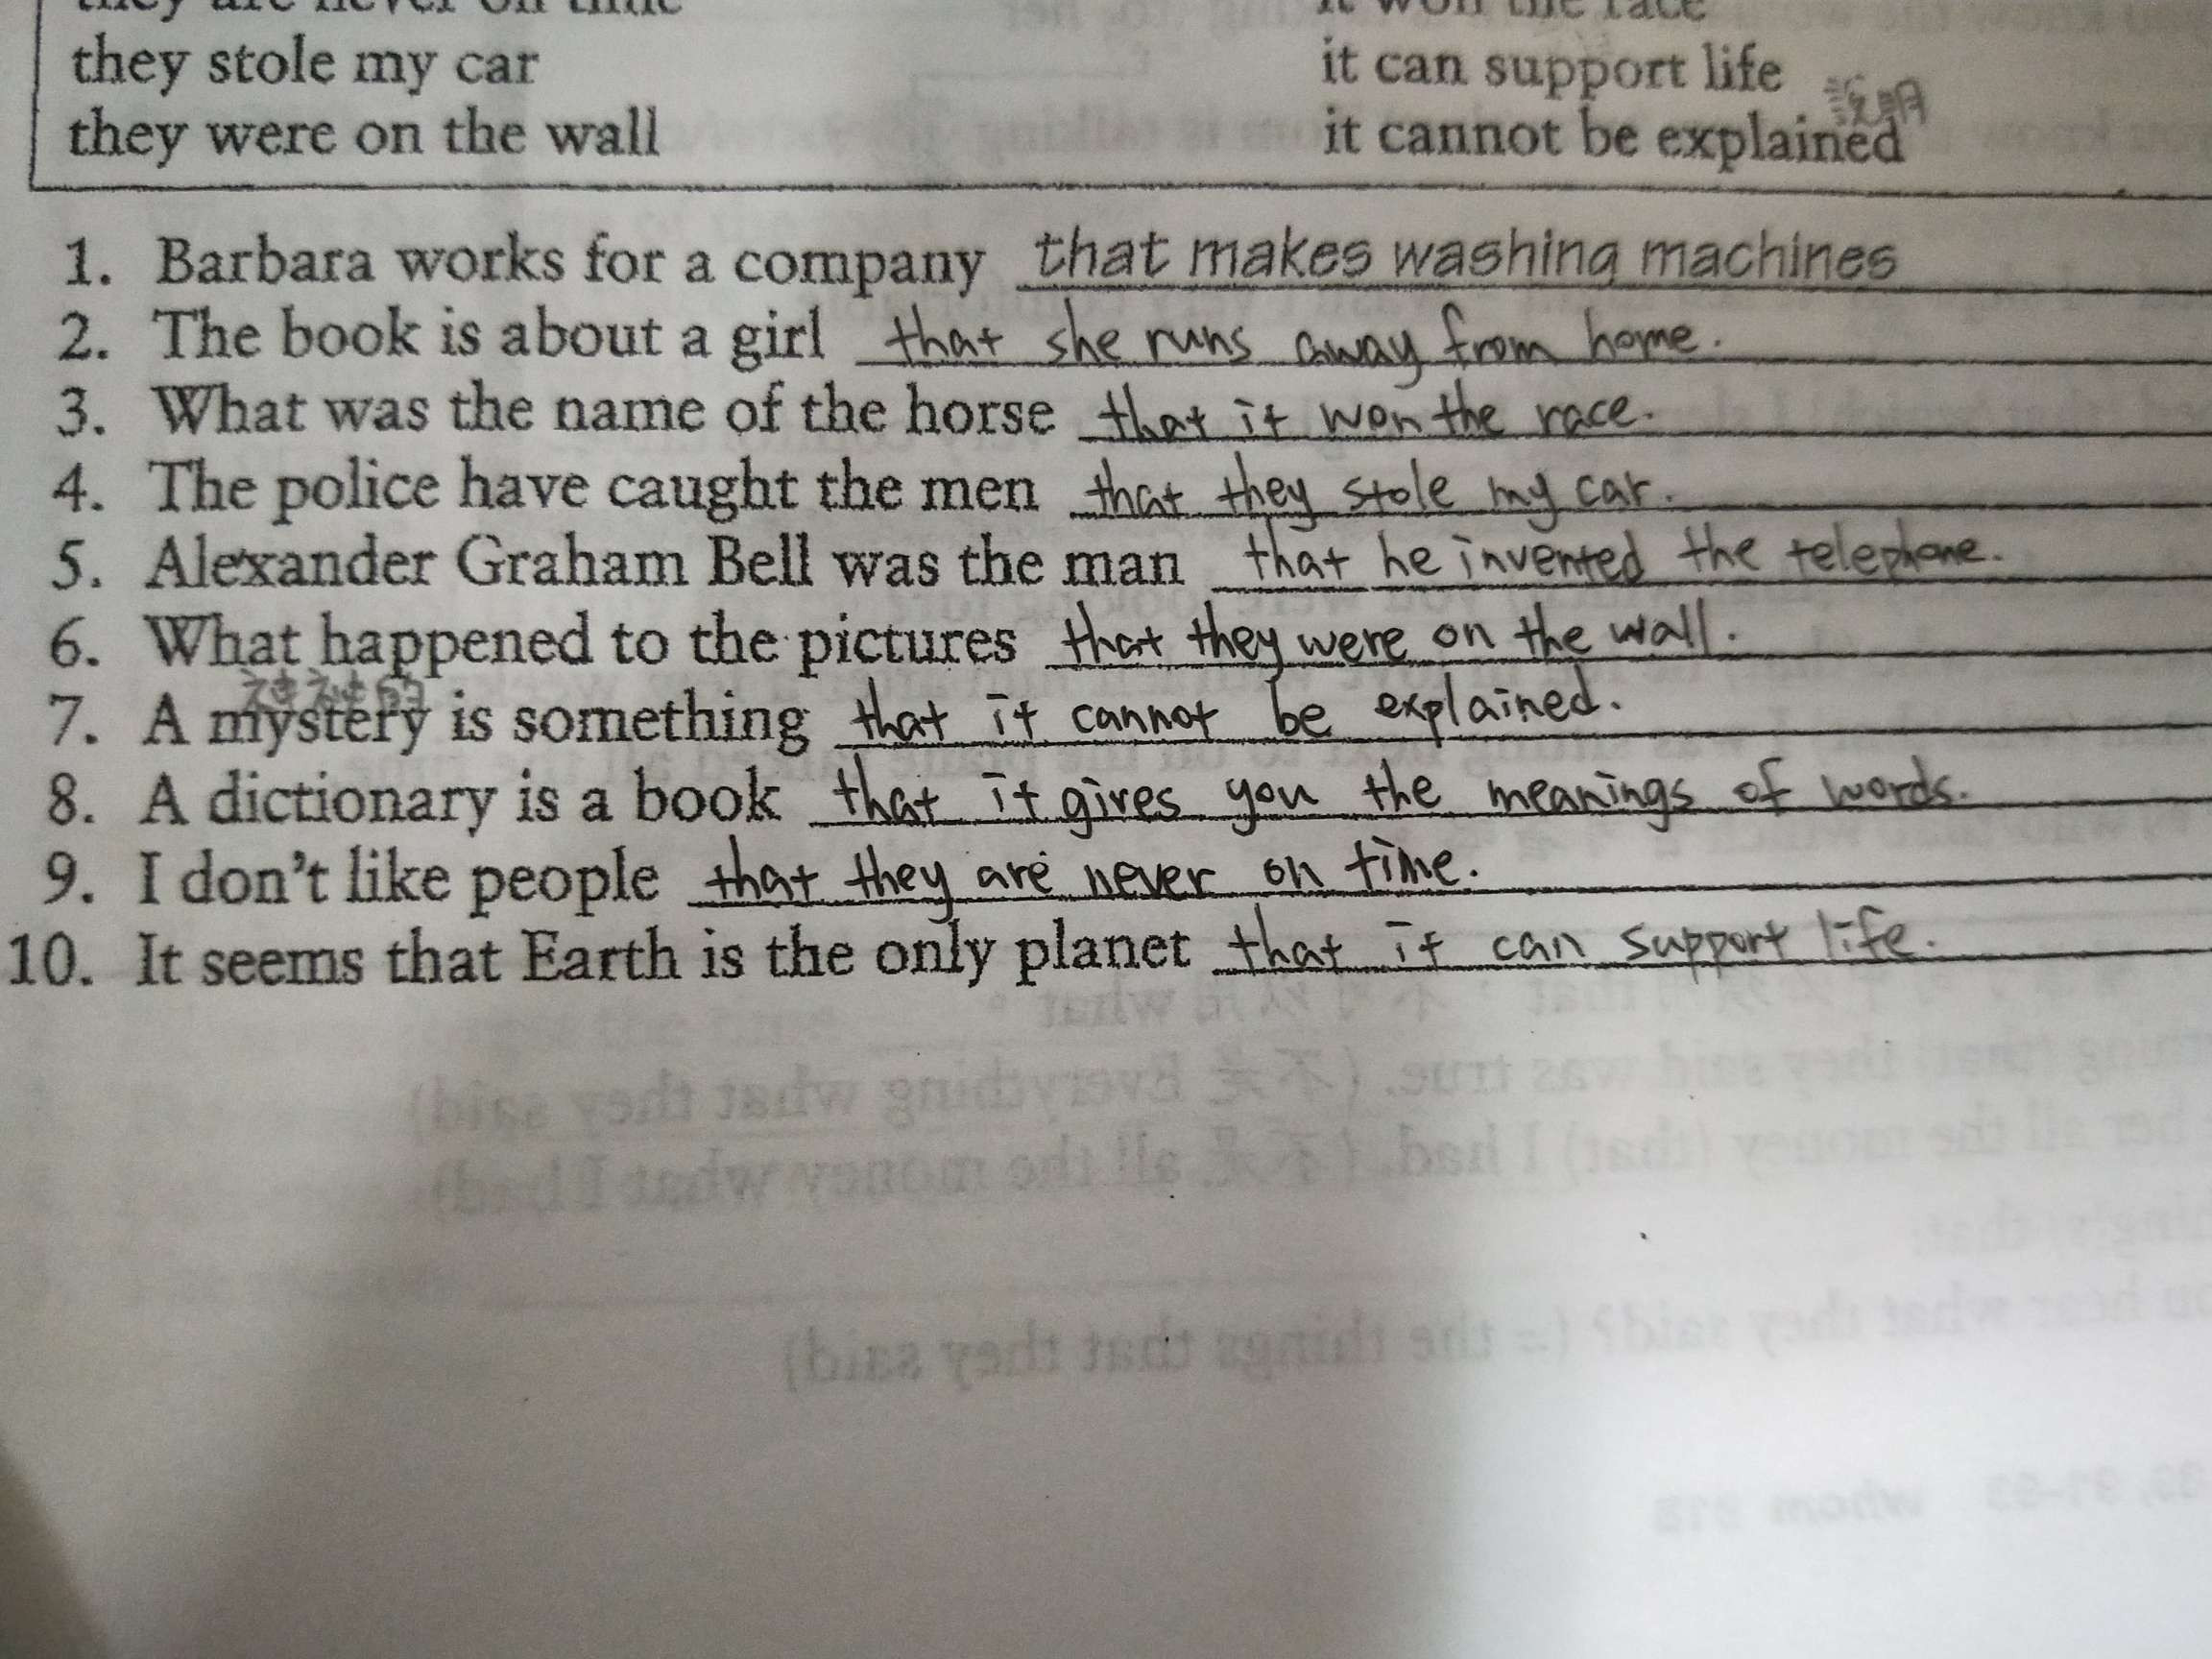 they are never on time it won the race
they stole my car it can support life
說明
they were on the wall it cannot be explained
1. Barbara works for a company that makes washing machines
2. The book is about a girl that she runs away from home.
3. What was the name of the horse that it won the race.
4. The police have caught the men that they stole my car.
5. Alexander Graham Bell was the man that he invented the telephone.
6. What happened to the pictures that they were on the wall.
7. A mystery is something that it cannot be explained.
8. A dictionary is a book that it gives you the meanings of words.
9. I don't like people that they are never on time.
10. It seems that Earth is the only planet that it can support life.